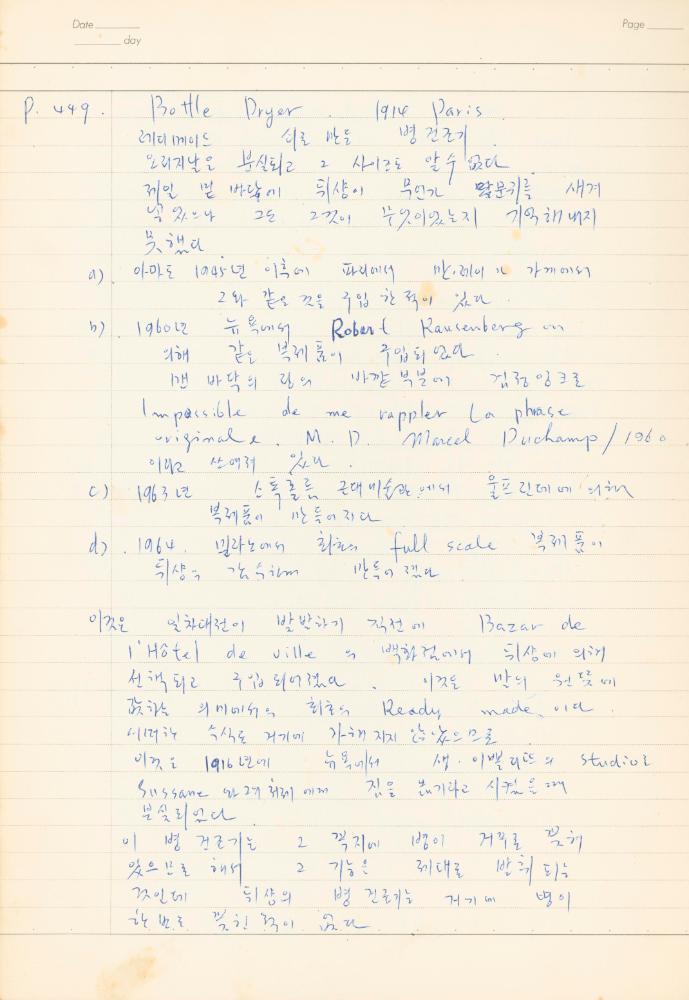 Date
day
Page
P. 449. Bottle Dryer. 1914 Paris.
레디메이드 쇠로 만든 병 건조기
오리지날은 분실되고 그 사이즈도 알 수 없다
제일 밑 바닥에 뒤샹이 무언가 말문귀를 새겨
넣었으나 그는 그것이 무엇이었는지 기억해 내지
못했다
a) 아마도 1945년 이후에 파리에서 만·레이가 가게에서
그와 같은 것을 구입 한 적이 있다.
b) 1960년 뉴욕에서 Robert Rausenberg에
의해 같은 복제품이 구입되었다
맨 바닥의 링의 바깥 부분에 검정잉크로
Impossible de me rappler la phrase
originale. M. D. Marcel Duchamp/1960
이라고 쓰여져 있다.
c) 1963년 스톡홀름 근대미술관에서 울프린데에 의하여
복제품이 만들어지다
d). 1964. 밀라노에서 최초의 full scale 복제품이
뒤샹의 감수하에 만들어졌다
이것은 일차대전이 발발하기 직전에 Bazar de
l'Hôtel de ville의 백화점에서 뒤샹에 의해
선택되고 구입되어졌다. 이것은 말의 원뜻에
값하는 의미에서의 최초의 Ready made이다.
어떠한 수식도 거기에 가해지지 않았으므로
이것은 1916년에 뉴욕에서 생·이뽈리뜨의 studio로
Sussane 와 그 처제에게 짐을 옮기라고 시켰을 때
분실되었다.
이 병 건조기는 그 꼭지에 병이 거꾸로 꽂혀
있으므로 해서 그 기능은 제대로 발휘되는
것인데 뒤샹의 병 건조기는 거기에 병이
한번도 꽂힌 적이 없다